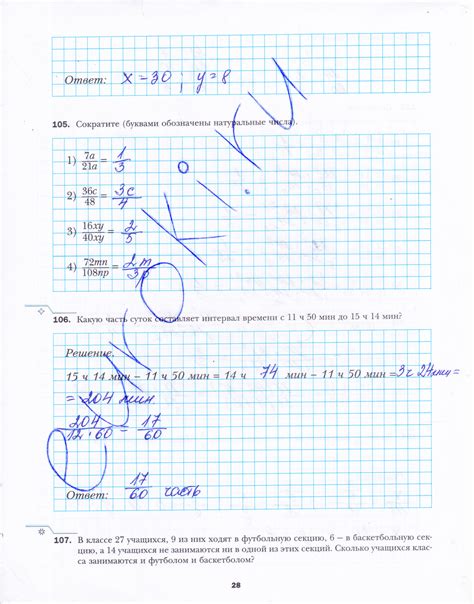 Ответ: x = 30 ; y = 8
105. Сократите (буквами обозначены натуральные числа).
1) 7a/21a = 1/3
2) 36c/48 = 3c/4
3) 16xy/40xy = 2/5
4) 72mn/108np = 2m/3p
106. Какую часть суток составляет интервал времени с 11 ч 50 мин до 15 ч 14 мин?
Решение.
15 ч 14 мин − 11 ч 50 мин = 14 ч 74 мин − 11 ч 50 мин = 3 ч 24 мин =
= 204 мин
204/12·60 = 17/60
Ответ: 17/60 часть
107. В классе 27 учащихся, 9 из них ходят в футбольную секцию, 6 – в баскетбольную сек-
цию, а 14 учащихся не занимаются ни в одной из этих секций. Сколько учащихся клас-
са занимаются и футболом и баскетболом?
28